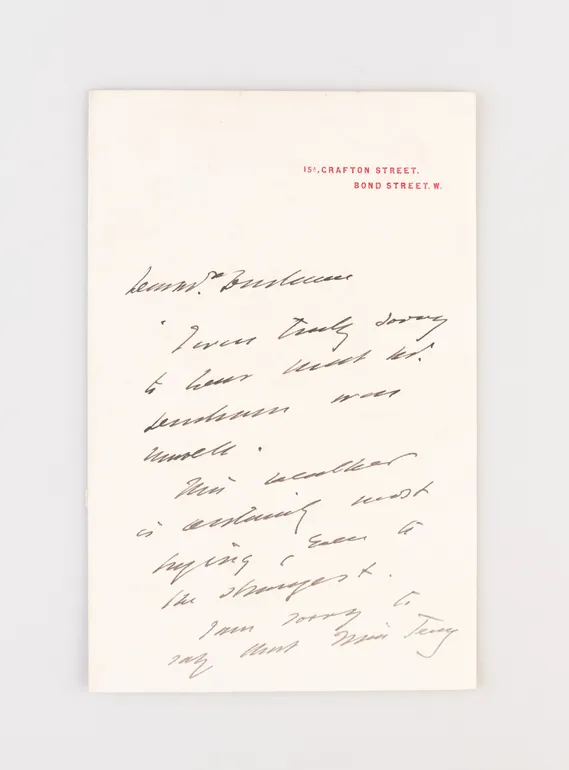 15A, GRAFTON STREET.
BOND STREET. W.
Dear
I was truly sorry
to hear that Mr.
was
unwell.
This weather
is certainly most
trying, even to
the strongest.
I am sorry to
say that Miss Terry